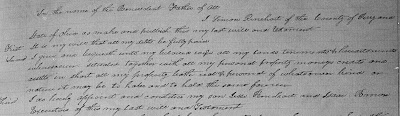 In the name of the Benevolent Father of All
I Simon Rinehart of the County of
State of Ohio do make and publish this my last will and testament
First It is my will that all my debts be fully paid
Second I give and bequeath unto my beloved wife all my lands tenements & hereditaments
whatsoever situated together with all my personal property moneys credits and
cattle in short all my property both real & personal of whatsoever kind or
nature it may be to have and to hold the same forever
Third I do hereby appoint and constitute my son Rinehart and
Executors of this my last will and Testament